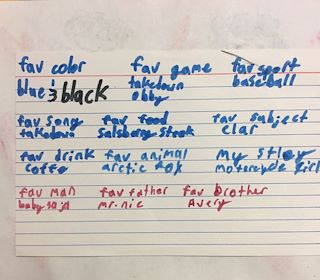 fav color fav game fav sport
blue & black takedown baseball
obby
fav song fav food fav subject
takedown salsberg steak clar
fav drink fav animal my stley
coffe arctic fox motorcycle girl
fav man fav father fav brother
baby saja mr.nie Avery